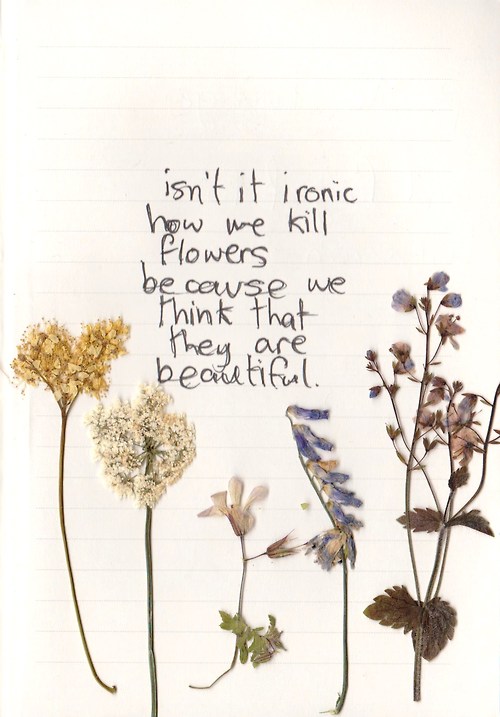 isn't it ironic
how we kill
flowers
because we
think that
they are
beautiful.